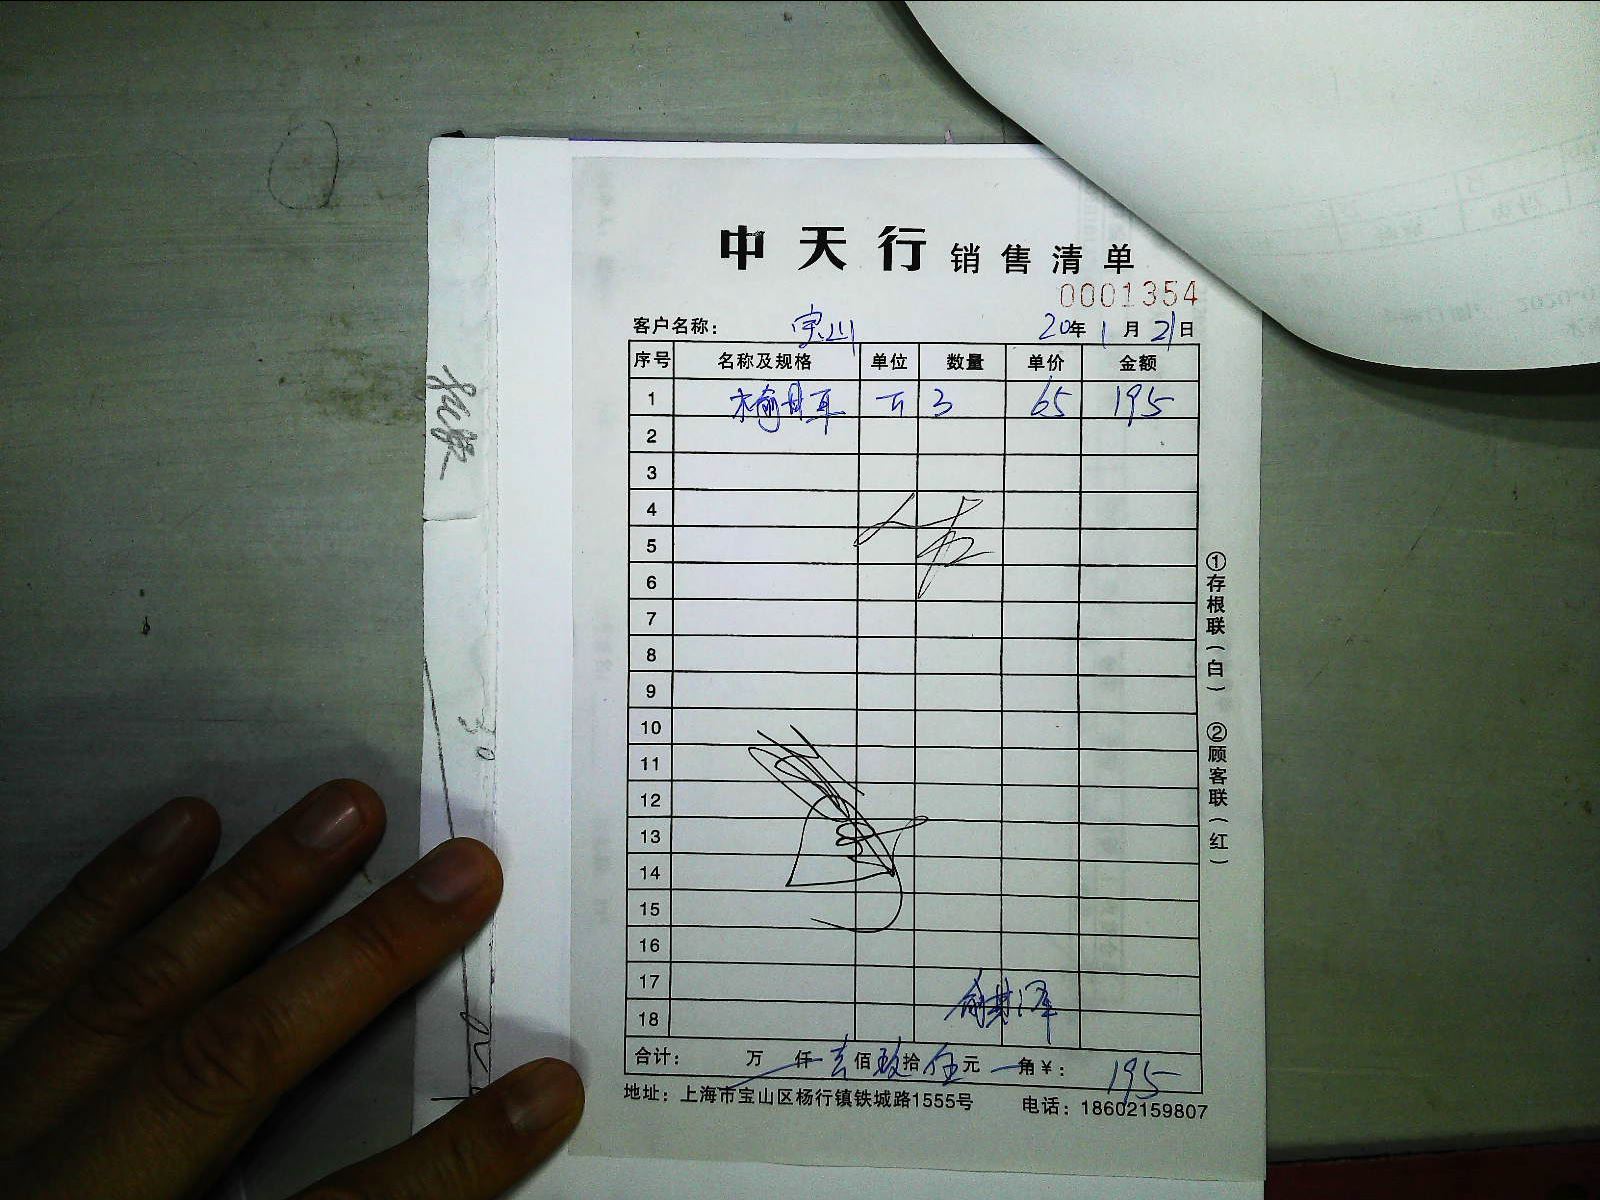 中天行 销售清单
0001354
客户名称： 宝山 20年 1月 21日
序号 名称及规格 单位 数量 单价 金额
1 3 65 195
2
3
4
5
6
7
8
9
10
11
12
13
14
15
16
17
18
合计： 万 仟 壹佰 玖拾 伍元 角 ¥： 195
地址：上海市宝山区杨行镇铁城路1555号 电话：18602159807
①存根联（白） ②顾客联（红）
30